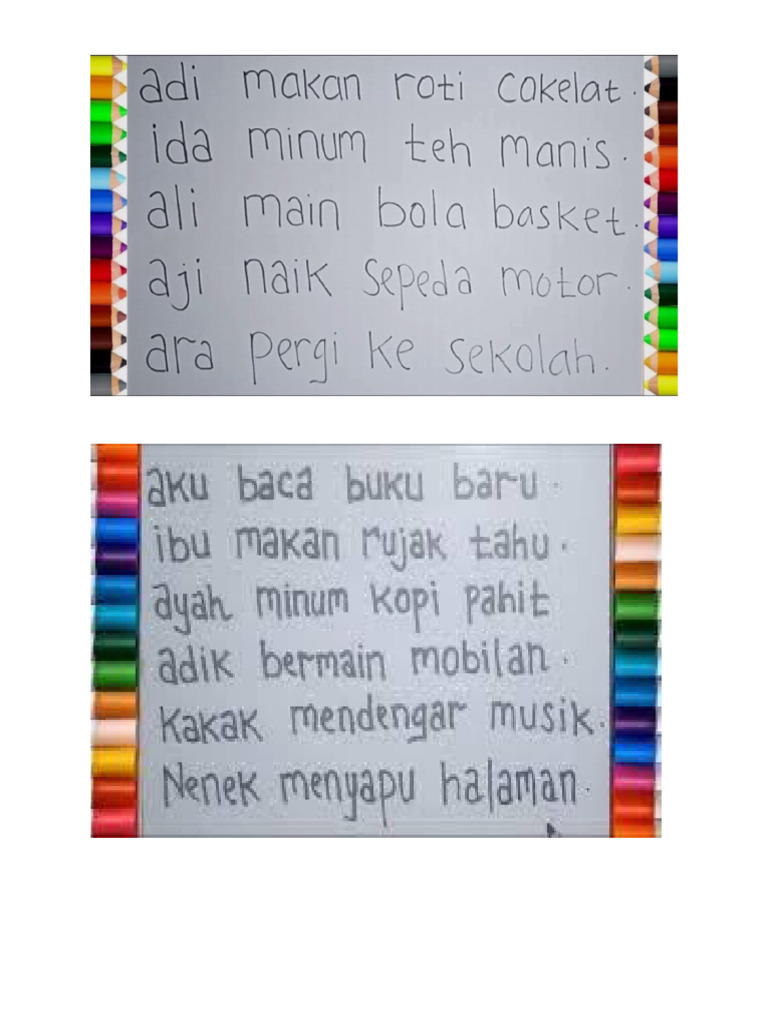 adi makan roti cokelat.
ida minum teh manis.
ali main bola basket.
aji naik sepeda motor.
ara pergi ke sekolah.
aku baca buku baru.
ibu makan rujak tahu.
ayah minum kopi pahit
adik bermain mobilan.
Kakak mendengar musik.
Nenek menyapu halaman.